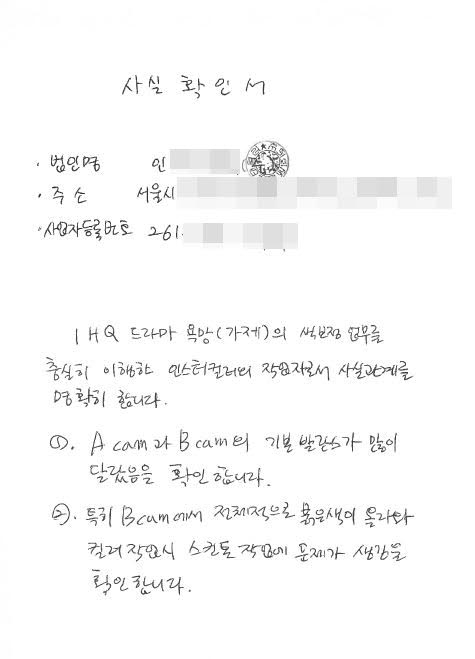 사실 확인서
· 법인명 인
· 주소 서울시
· 사업자등록번호 261.
IHQ 드라마 욕망(가제)의 색보정 업무를
충실히 이행한 인스터컬러의 작업자로서 사실관계를
명확히 합니다.
①. A cam과 B cam의 기본 발란스가 많이
달랐음을 확인합니다.
②. 특히 B cam에서 전체적으로 붉은색이 올라와
컬러 작업시 스킨톤 작업에 문제가 생김을
확인합니다.